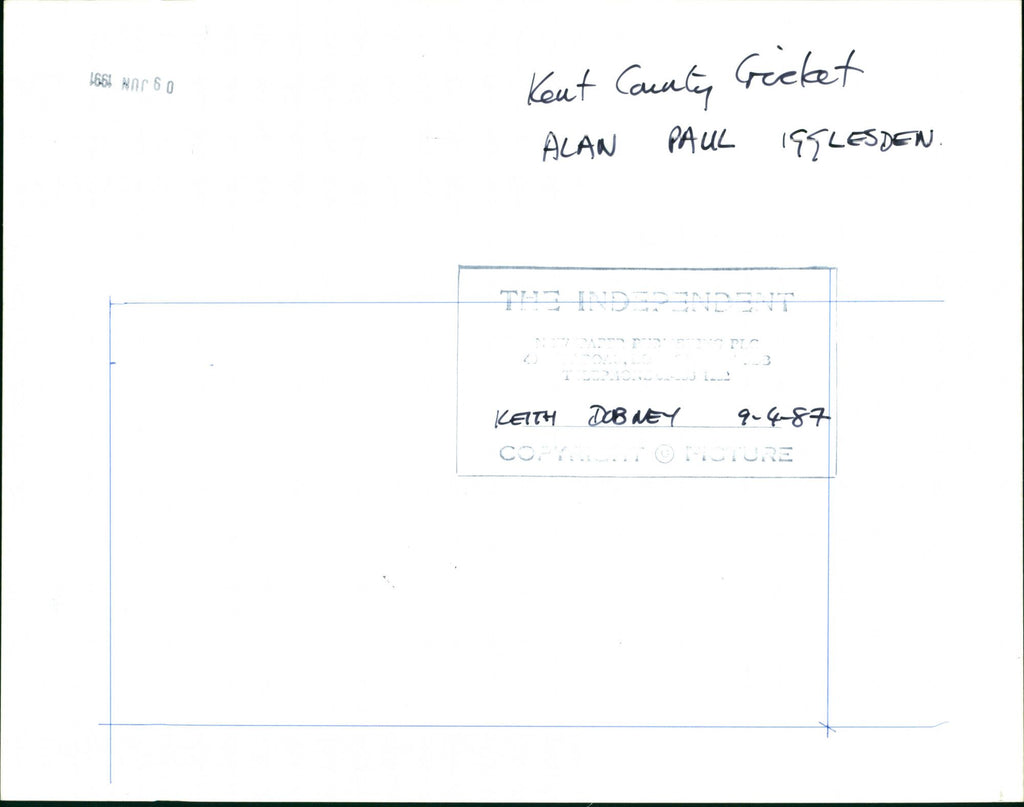 09 JUN 1991
Kent County Cricket
ALAN PAUL IGGLESDEN.
THE INDEPENDENT
NEWSPAPER PUBLISHING PLC
KEITH DOBNEY 9-4-87
COPYRIGHT © PICTURE